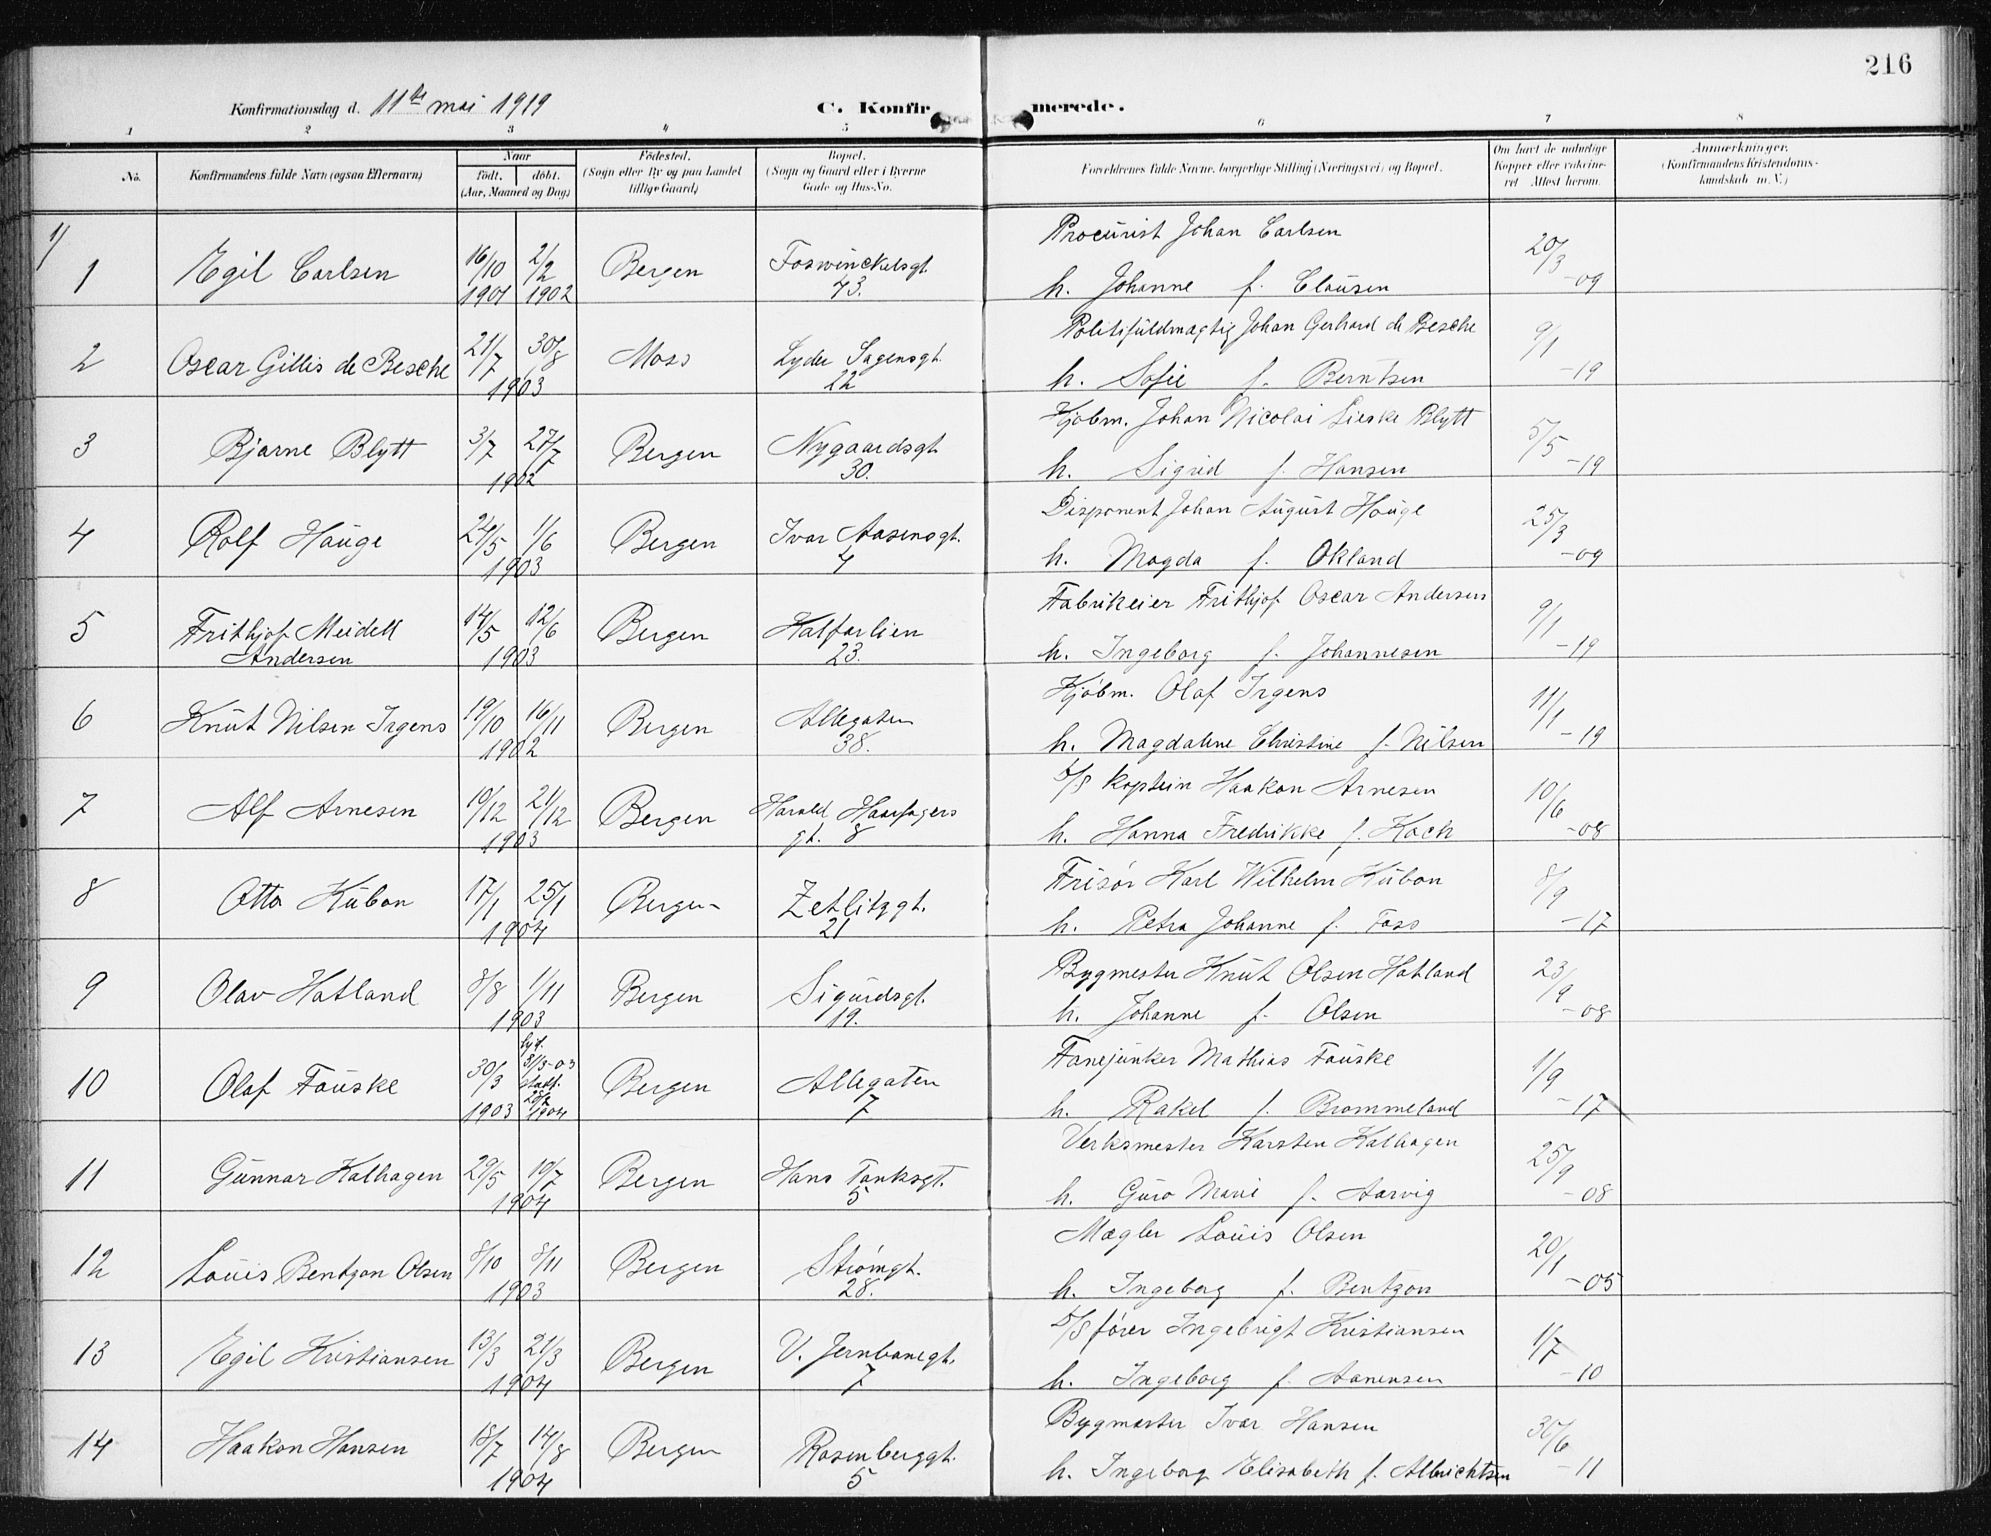 216
Konfirmationsdag d. 11te mai 1919 C. Konfirmerede.
1 2 3 4 5 6 7 8
No. Konfirmandens fulde Navn (ogsaa Efternavn) Naar født. døbt. (Aar, Maaned og Dag) Fødested. (Sogn eller By og paa Landet tillige Gaard) Bopæl. (Sogn og Gaard eller i Byerne Gade og Hus-No. Forældrenes fulde Navne, borgerlige Stilling (Næringsvei) og Bopæl. Om havt de naturlige Kopper eller vakcineret. Attest herom. Anmærkninger. (Konfirmandens Kristendomskundskab m. V.)
1/
1 Egil Carlsen 16/10 1901 2/2 1902 Bergen Foswinckelsgt. 73. Procurist Johan Carlsen
h. Johanne f. Clausen 20/3 -09
2 Oscar Gillis de Besche 21/7 30/8 1903 Moss Lyder Sagensgt. 22 Politifuldmægtig Johan Gerhard de Besche
h. Sofie f. Berntsen 9/1 -19
3 Bjarne Blytt 3/7 27/7 1902 Bergen Nygaardsgt 30. Kjøbm. Johan Nicolai Blytt
h. Sigrid f. Hansen 5/5 -19
4 Rolf Hauge 24/5 1/6 1903 Bergen Ivar Aasensgt. 4 Disponent Johan August Hauge
h. Magda f. Økland 25/3 -09
5 Frithjof Meidell Andersen 14/5 12/6 1903 Bergen Kalfarlien 23. Fabrikeier Frithjof Oscar Andersen
h. Ingeborg f. Johannesen 9/1 -19
6 Knut Nilsen Irgens 19/10 16/11 1902 Bergen Allegaten 38. Kjøbm. Olaf Irgens
h. Magdalene Christine f. Nilsen 11/1 -19
7 Alf Arnesen 10/12 21/12 1903 Bergen Harald Haarfagers gt. 8 D/S kaptein Haakon Arnesen
h. Hanna Fredrikke f. Koch 10/6 -08
8 Otto Kubon 17/1 25/1 1904 Bergen Zetlitzgt. 21 Frisør Karl Wilhelm Kubon
h. Petra Johanne f. Foss 8/9 -17
9 Olav Hatland 8/8 1/11 1903 Bergen Sigurdsgt. 19. Bygmester Knut Olsen Hatland
h. Johanne f. Olsen 23/9 -08
10 Olaf Fauske 30/3 1903 hjd. 31/3-03 stadf. 28/2 1904 Bergen Allegaten 7 Fanejunker Mathias Fauske
h. Rakel f. Brommeland 1/9 -17
11 Gunnar Kalhagen 29/5 10/7 1904 Bergen Hans Tanksgt. 5 Verksmester Karsten Kalhagen
h. Guro Marie f. Aarvig 25/9 -08
12 Louis Bentzon Olsen 8/10 8/11 1903 Bergen Strømgt. 28. Mægler Louis Olsen
h. Ingeborg f. Bentzon 20/1 -05
13 Egil Kristiansen 13/3 21/3 1904 Bergen V. Jernbanegt. 7 D/S fører Ingebrigt Kristiansen
h. Ingeborg f. Aanensen 1/7 -10
14 Haakon Hansen 18/7 14/8 1904 Bergen Rosenberggt. 5 Bygmester Ivar Hansen
h. Ingeborg Elisabeth f. Albrichtsen 30/6 -11